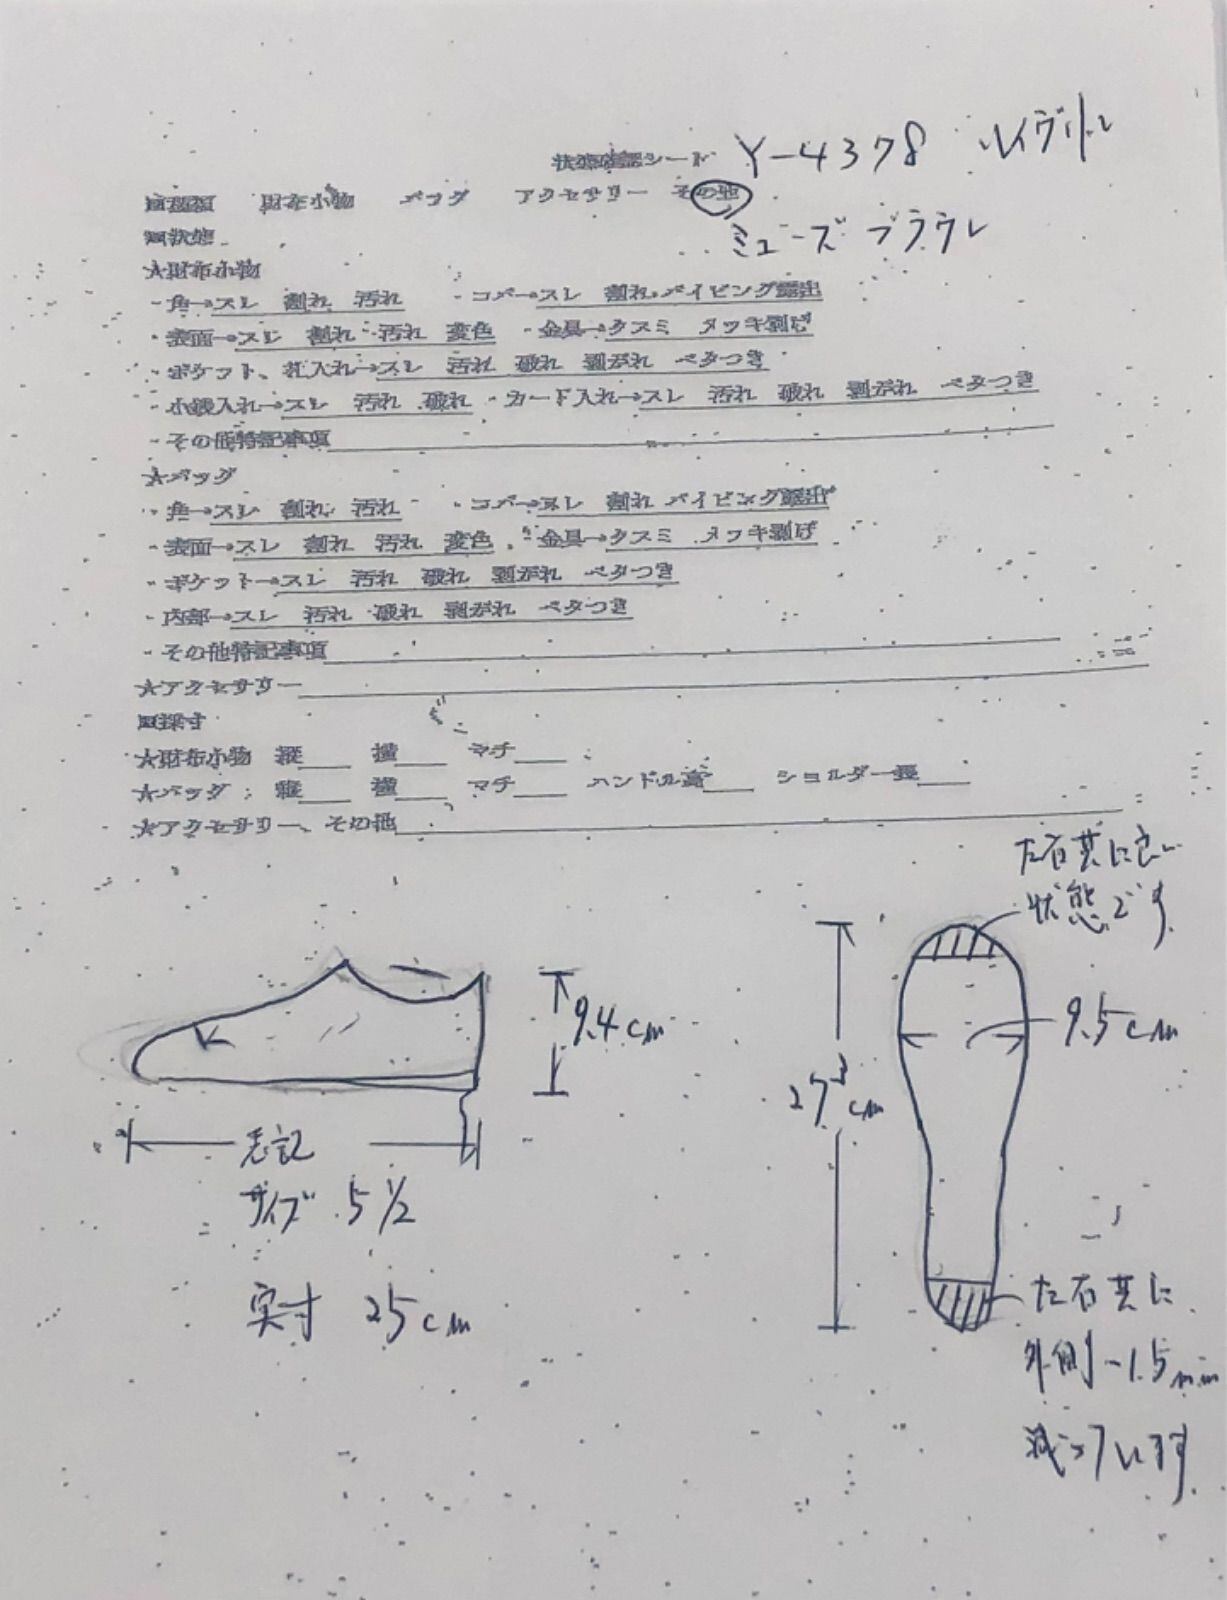 状態確認シート Y-4378 ルイヴィトン
財布小物 バッグ アクセサリー その他
ミューズ ブラウン
■状態
★財布小物
・角→スレ 割れ 汚れ ・コバ→スレ 割れ パイピング露出
・表面→スレ 割れ 汚れ 変色 ・金具→クスミ メッキ剥げ
・ポケット、札入れ→スレ 汚れ 破れ 剥がれ ベタつき
・小銭入れ→スレ 汚れ 破れ ・カード入れ→スレ 汚れ 破れ 剥がれ ベタつき
・その他特記事項
★バッグ
・角→スレ 割れ 汚れ ・コバ→スレ 割れ パイピング露出
・表面→スレ 割れ 汚れ 変色 ・金具→クスミ メッキ剥げ
・ポケット→スレ 汚れ 破れ 剥がれ ベタつき
・内部→スレ 汚れ 破れ 剥がれ ベタつき
・その他特記事項
★アクセサリー
■採寸
★財布小物 縦 横 マチ
★バッグ : 縦 横 マチ ハンドル高 ショルダー長
★アクセサリー、その他
左右共に良い
状態です
9.4cm
9.5cm
27.3cm
表記
サイズ 5 1/2
実寸 25cm
左右共に
外側-1.5mm
減っています